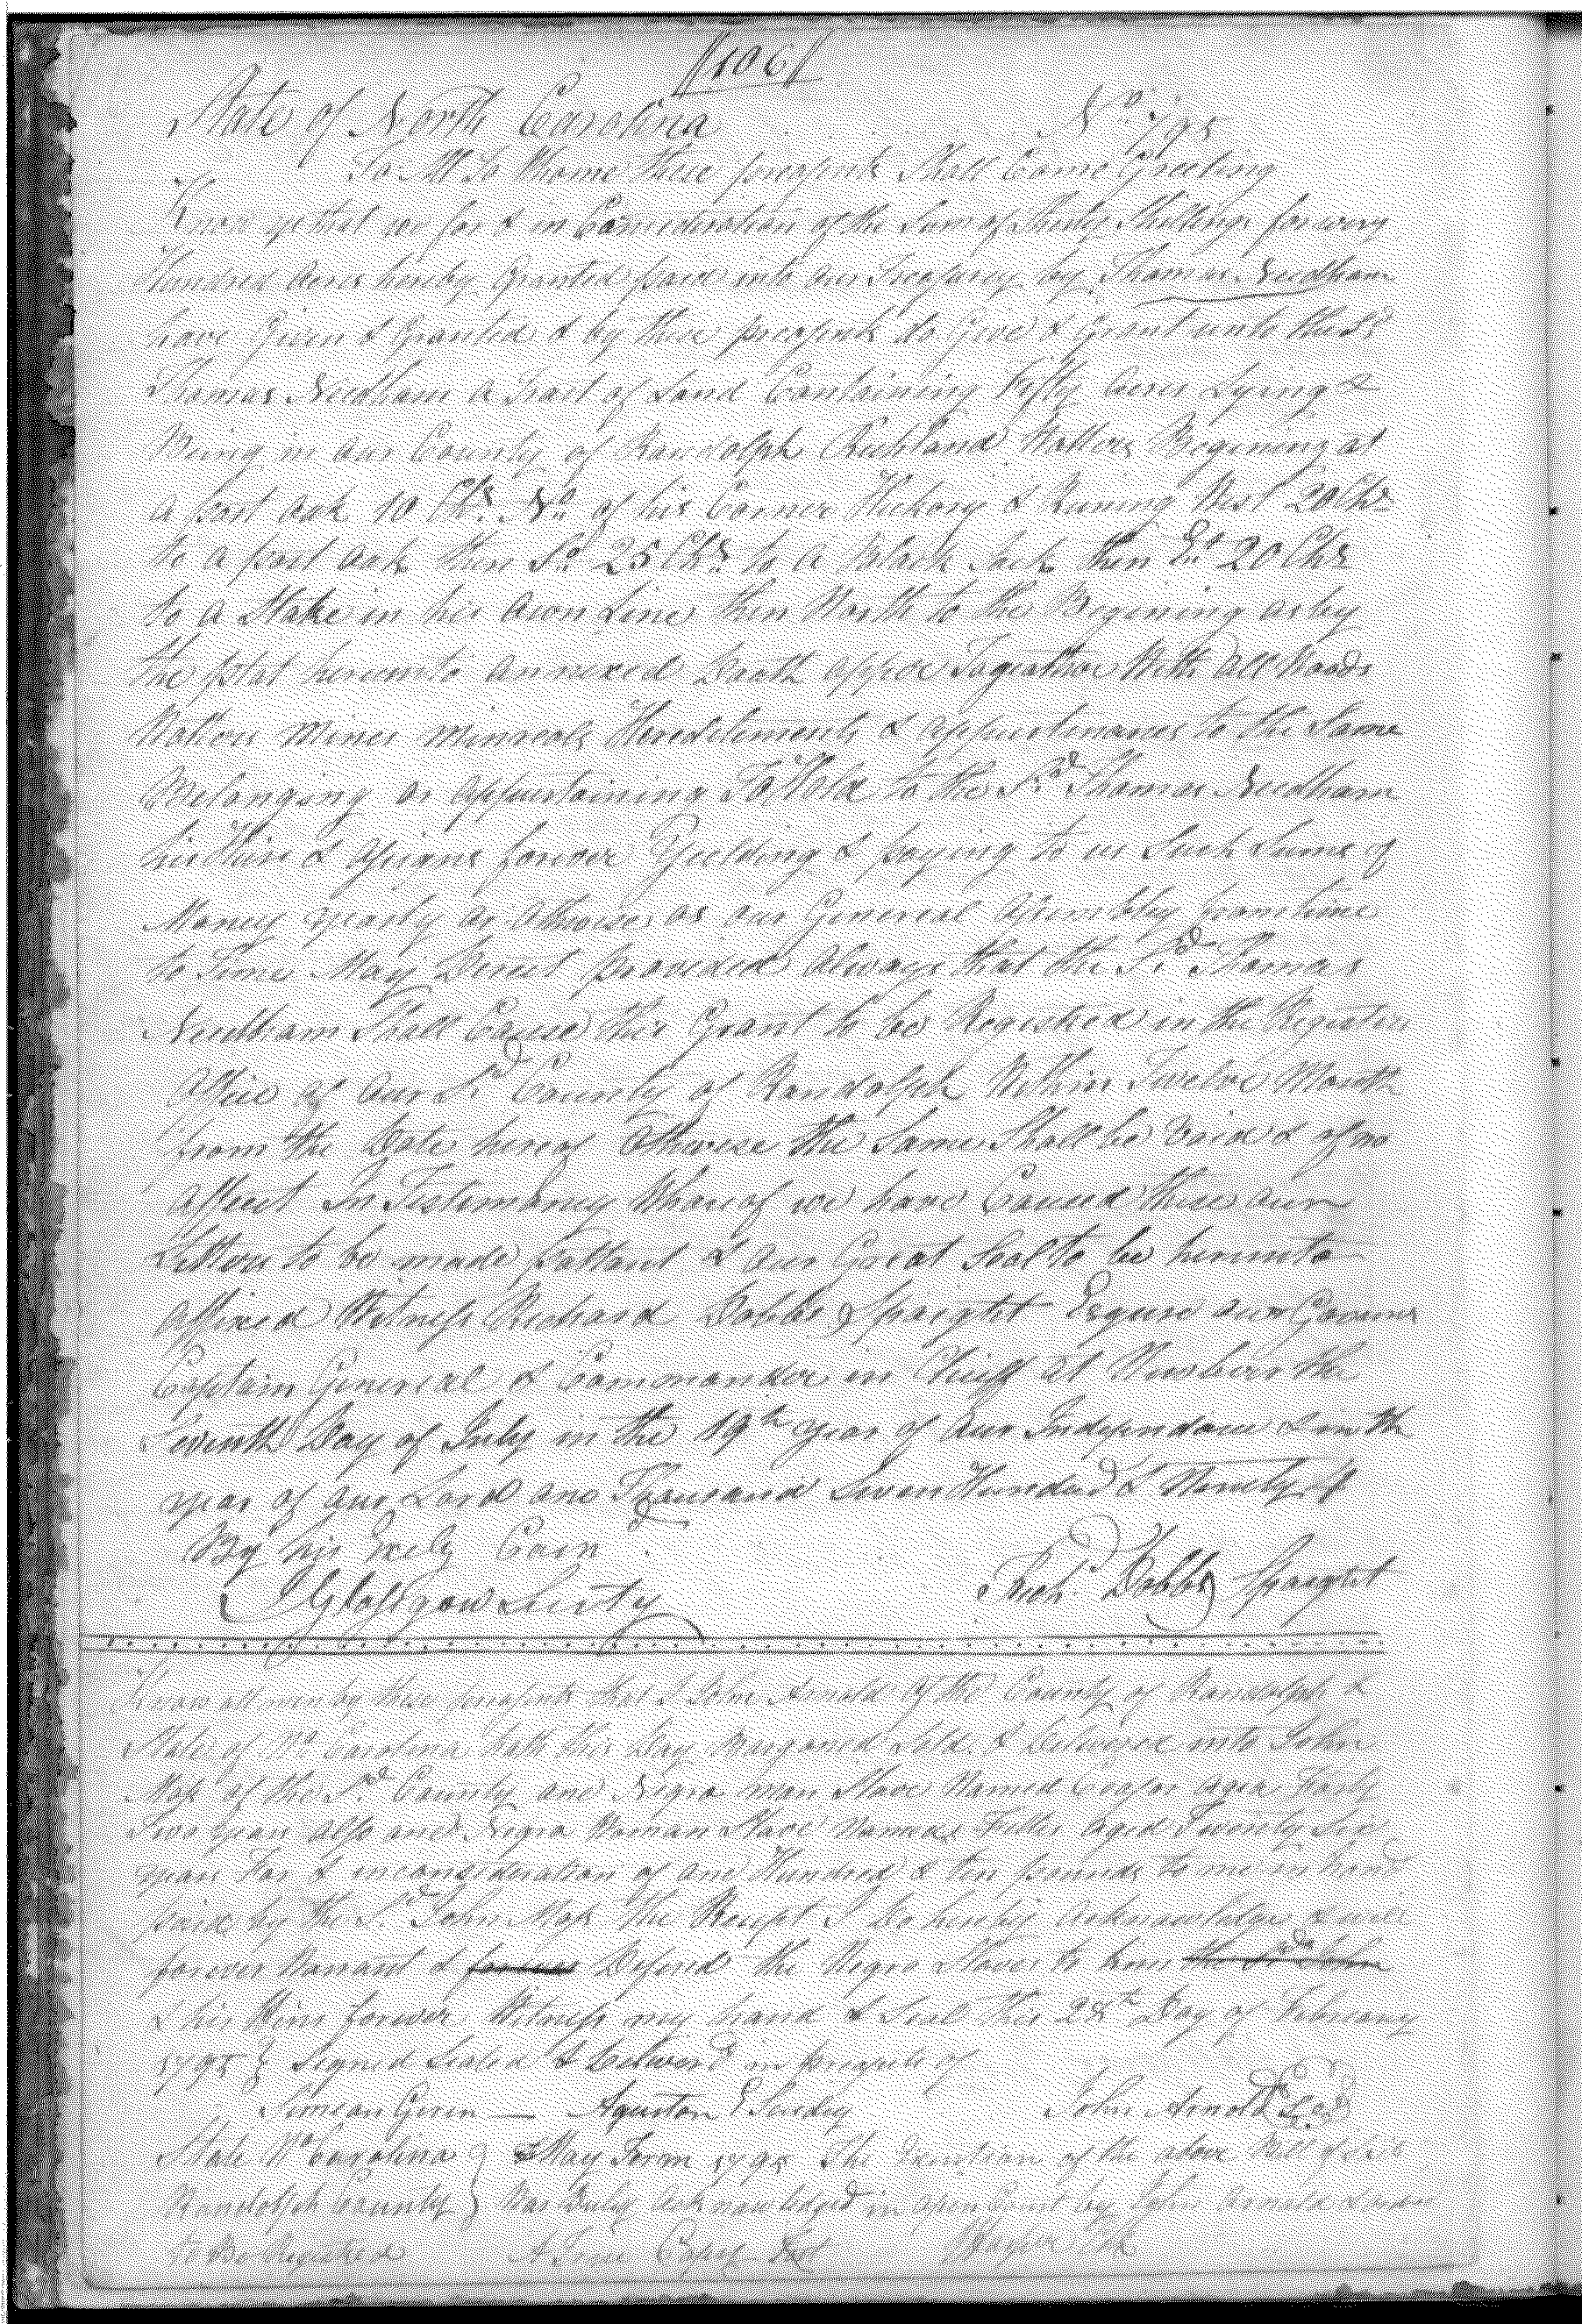 106
State of North Carolina No 195
To All To Whome these presents Shall Come Greeting
Know ye that we for & in Consideration of the Sum of Thirty Shillings for every
Hundred Acres hereby Granted paid into our Treasurey by Thomas Needham
have Given & Granted & by these presents do Give & Grant unto the Sd
Thomas Needham A Tract of Land Containing Fifty Acres Lying &
Being in our County of Randolph Richland Waters Begining at
a post oak 10 Chs No of his Corner Hickory & Runing West 20 Chs
to A post oak then So 25 Chs to A Black Jack then Et 20 Chs
to A Stake in his Own Line then North to the Begining as by
the plat hereunto annexed Doath appear Togeather With all Woods
Waters Mines Minerals Hereditaments & appurtenances to the Same
Belonging or Appurtaining To Hold to the Sd Thomas Needham
his Heirs & Assigns forever Yielding & paying to us Such Sums of
Money yearly or Otherwise as our General Assembly from time
to Time May Direct provided Always that the Sd Thomas
Needham Shall Cause this Grant to be Registred in the Registers
Office of our Sd County of Randolph Within Twelve Month
from the Date hereof Otherwise the Same Shall be Void & of no
Affect In Testimoney Whareof we have Caused these our
Letters to be made pattent & our Great Seal to be hereunto
Affixed Witness Richard Dobbs Spaight Esqure our Govener
Captain General & Commander in Chieff at Newbern the
Seventh Day of July in the 19th year of Our Independance & in the
year of our Lord one Thousand Seven Hundred & Ninety
By his Comd
J Glasgow Secrty Richd Dobbs Spaight
Know all men by these presents that I John Arnold of the County of Randolph &
State of No Carolina hath this Day Bargoned Sold & Delivered unto John
of the Sd County one Negro man Slave Named Ceasar aged Forty
Two years Also one Negro Woman Slave Named aged Twenty
years For & in consideration of one Hundred & ten pounds to me in hand
paid by the Sd John the Receipt I Do hereby Acknowledge & will
forever Warrant & Defend the Negro Slaves to him
& his Heirs forever Witness my hand & Seal this 28th Day of February
1795 Signed Sealed & Delivered in presents of
Simeon Geren John Arnold
State No Carolina May Term 1795 The Execution of the above Bill of Sale
Randolph County Was Duly Acknowledged in open Court by John Arnold &
to Be Registred A True Copey